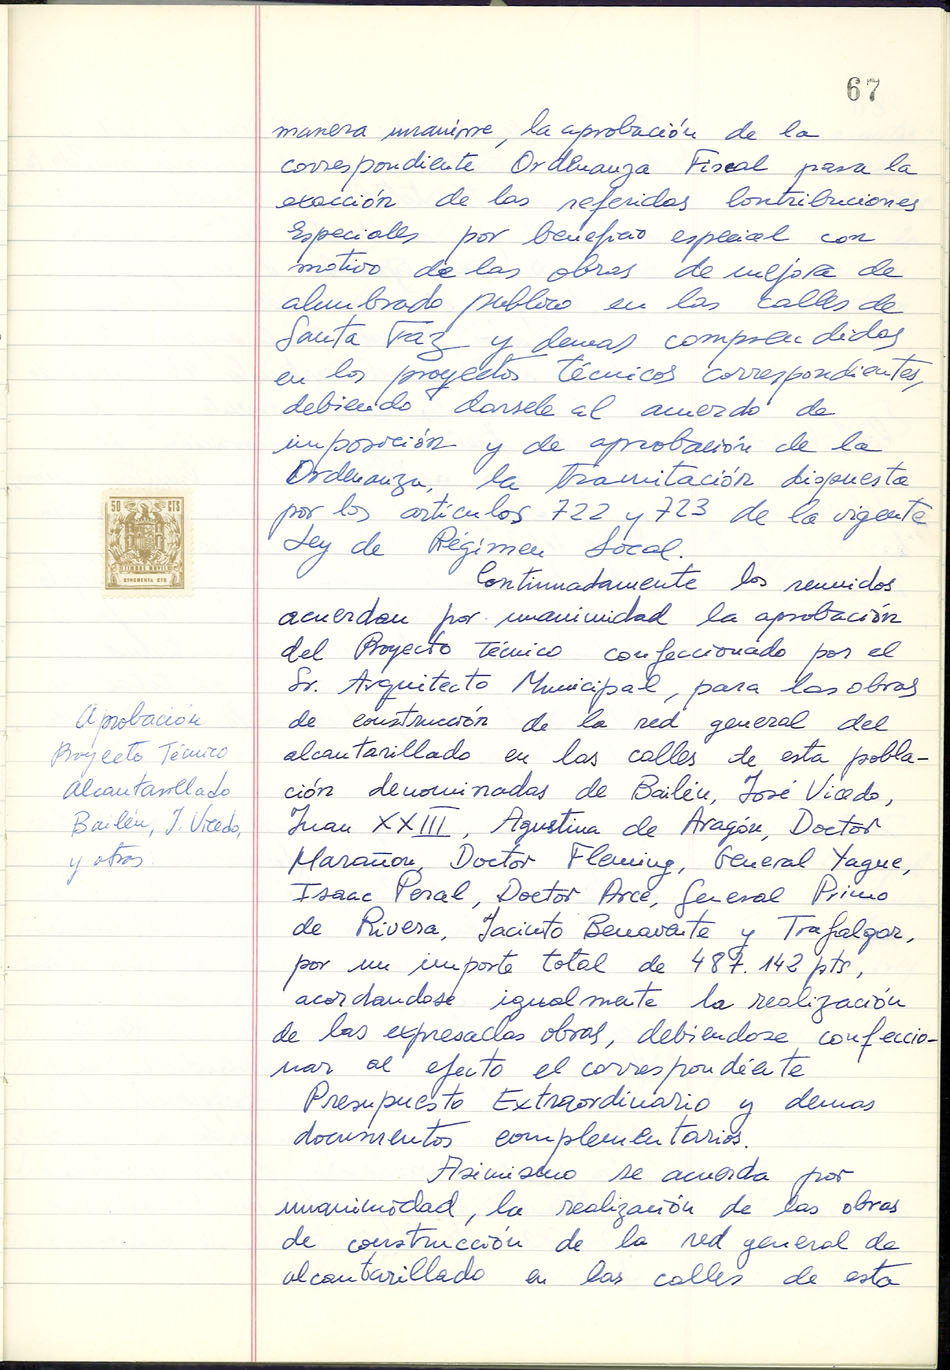 67
manera unanime, la aprobación de la
correspondiente Ordenanza Fiscal para la
exacción de las referidas Contribuciones
Especiales por beneficio especial con
motivo de las obras de mejora de
alumbrado publico en las calles de
Santa Faz y demas comprendidas
en los proyectos técnicos correspondientes,
debiendo darsele al acuerdo de
imposición y de aprobación de la
Ordenanza, la tramitación dispuesta
por los artículos 722 y 723 de la vigente
Ley de Régimen Local.
Continuadamente los reunidos
acuerdan por unanimidad la aprobación
del Proyecto Técnico confeccionado por el
Sr. Arquitecto Municipal, para las obras
de construcción de la red general del
alcantarillado en las calles de esta pobla-
ción denominadas de Bailén, José Vicedo,
Juan XXIII, Agustina de Aragón, Doctor
Marañon, Doctor Fleming, General Yague,
Isaac Peral, Doctor Arce, General Primo
de Rivera, Jacinto Benavente y Trafalgar,
por un importe total de 487.142 pts,
acordandose igualmente la realización
de las expresadas obras, debiendose confeccio-
nar al efecto el correspondiente
Presupuesto Extraordinario y demas
documentos complementarios.
Asimismo se acuerda por
unanimidad, la realización de las obras
de construcción de la red general de
alcantarillado en las calles de esta
50 CTS
CINCUENTA CTS
Aprobación
Proyecto Técnico
alcantarillado
Bailén, J. Vicedo,
y otras.